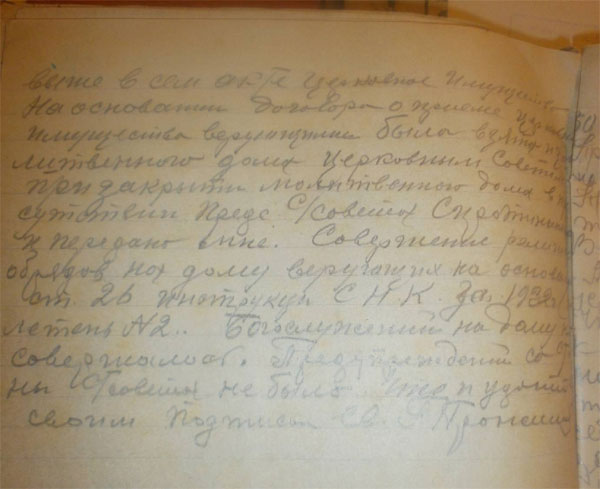 выше в сем акте церковное имущество
На основании договора о приеме церков
имущества верующими была взята из
литвенного дома Церковним Советом
при закрыти молитвенного дома в
сутствии Предс С/советов
и передано мне. Совершение
обрядов на дому верующих на основа
от. 26 инструкци С Н К. за 193
летень N2. Богослужений на дому н
совершалось. Предупреждений со
ны С/совета не было
своим Подписом Св.